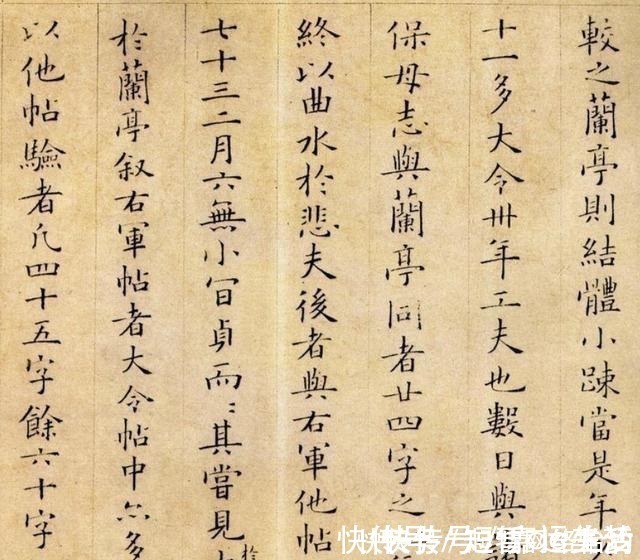 較之蘭亭則結體小踈當是年
十一多大令卅年工夫也數日與
保母志與蘭亭同者廿四字之
終以曲水於悲夫後者與右軍他帖
七十三二月六無小官貞而〻其嘗見
於蘭亭叙右軍帖者大令帖中亦多
以他帖驗者凡四十五字餘六十字
快快号/